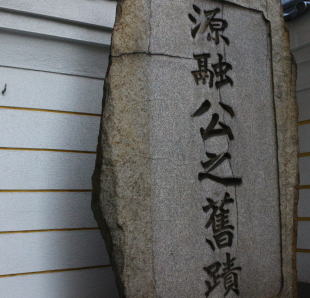 源融公之舊蹟